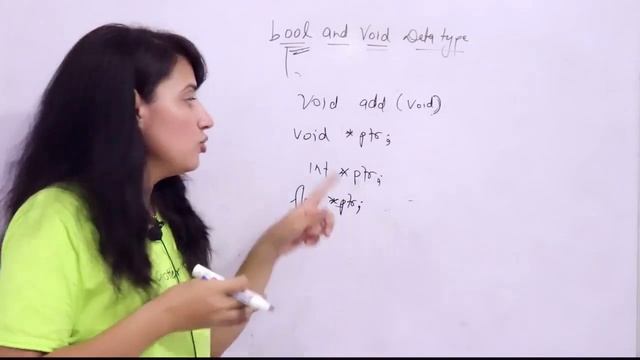 bool and void Data type
void add (void)
void *ptr;
int *ptr;
*ptr;